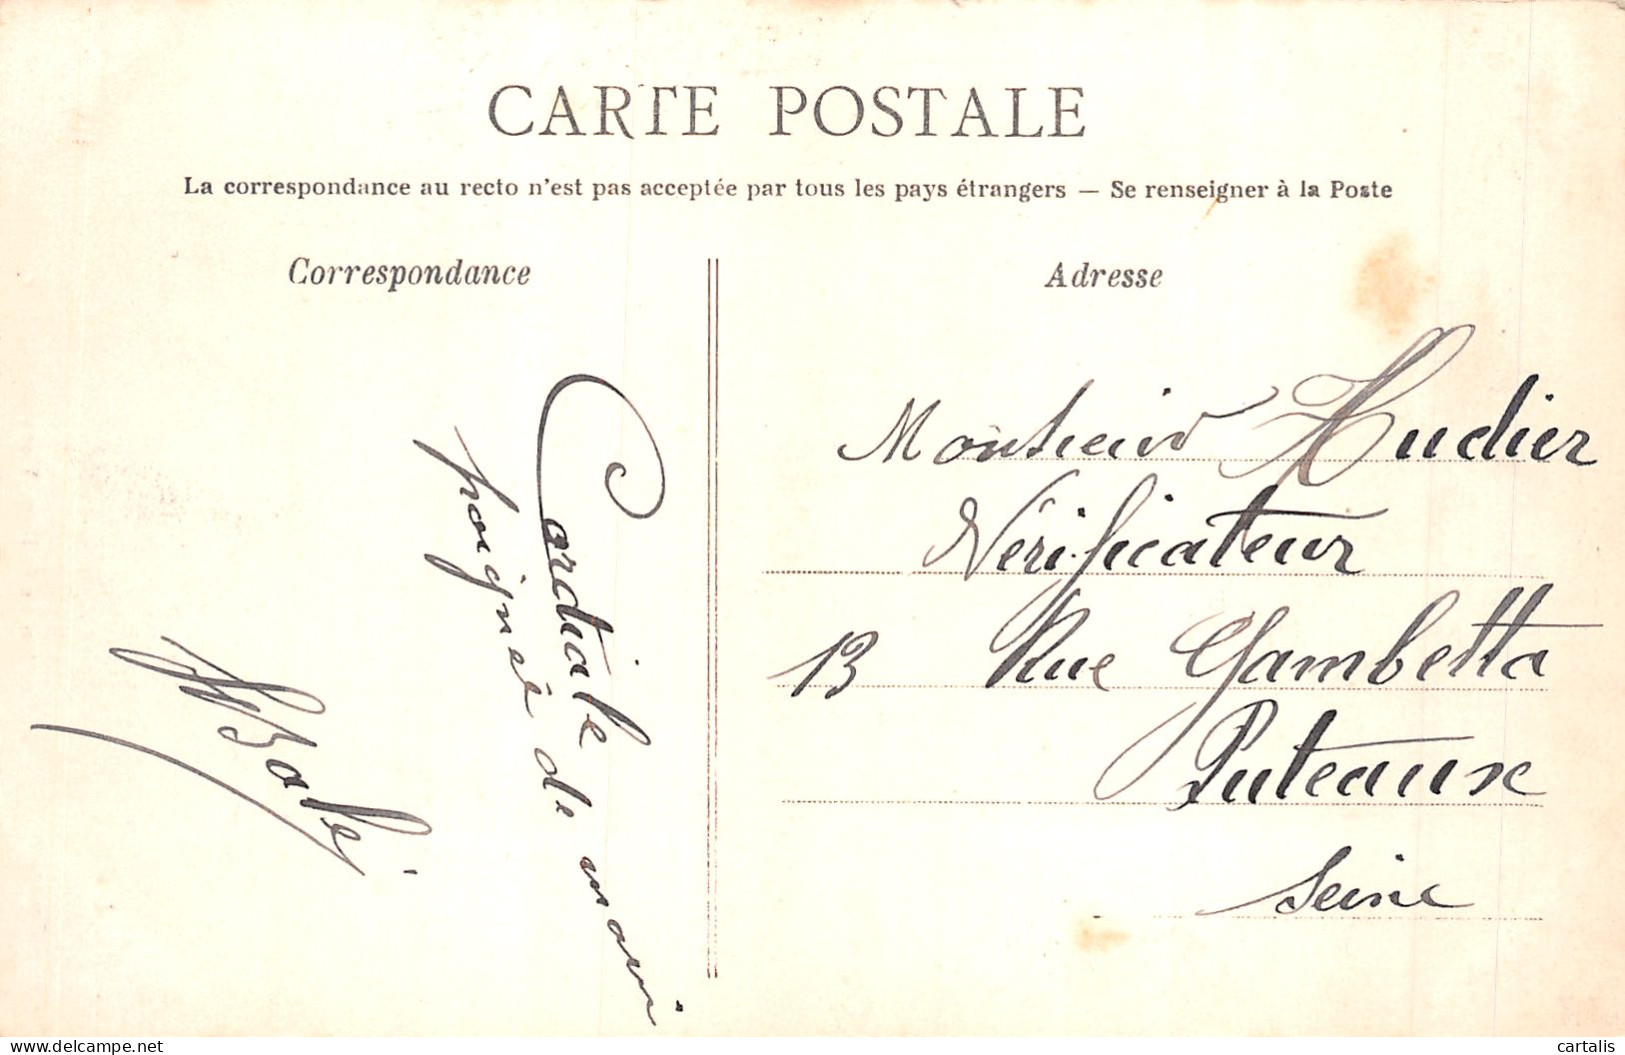 CARTE POSTALE
La correspondance au recto n'est pas acceptée par tous les pays étrangers — Se renseigner à la Poste
Correspondance
Cordiale
poignée de main
Adresse
Monsieur Hudier
Vérificateur
13 Rue Gambetta
Puteaux
Seine
delcampe.net
cartalis